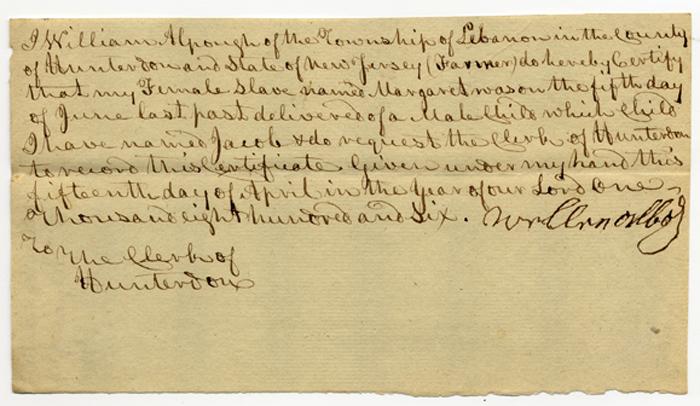 I William Alpough of the Township of Lebanon in the County
of Hunterdon and State of New Jersey (Farmer) do hereby Certify
that my Female Slave named Margaret was on the fifth day
of June last past delivered of a Male Child which Child
I have named Jacob & do request the Clerk of Hunterdon
to record this Certificate Given under my hand this
fifteenth day of April in the Year of our Lord One
Thousand eight hundred and six.
To the Clerk of
Hunterdon